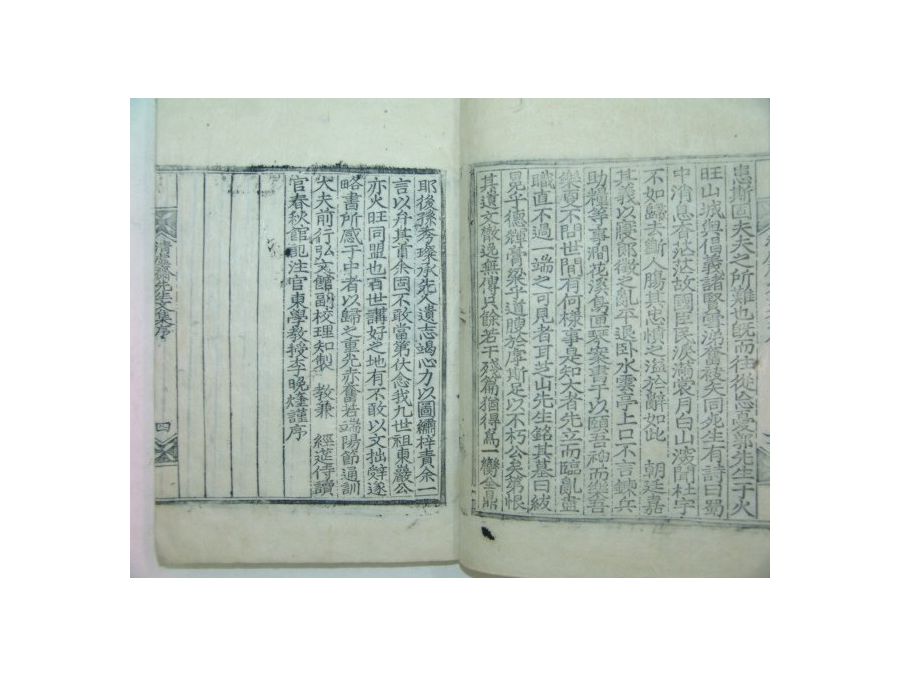 夫夫之所難也旣而往從忘憂郭先生于火
旺山城與倡義諸賢
中消息有茫茫故國
不如歸未斷人腸其忠憤之溢於辭如此 朝廷嘉
其義以 及亂平退臥水雲亭上口不言鋉兵
助糧等事間花渓鳥一區琴案書于以頤吾神而樂吾
樂更不問世間有何樣事是知大者先立而臨亂盡
職直不過一端之可見者耳芝山先生銘其墓曰紱
冕乎德輝膏粱乎道腴於庠斯足以不朽公矣第恨
其遺文散逸無傳只餘若干殘篇猶得爲一臠全鼎
耶後孫秀璨承先人遺志竭心力以圖繡梓責余一
言以弁其首余固不敢當第伏念我九世祖東巖公
亦火旺同盟也百世講好之地有不敢以文拙辭遂
略書所感于中者以歸之重光赤奮若端陽節通訓
大夫前行弘文館副校理知製 敎兼 經筵侍讀
官春秋館記注官東學敎授李晩煃謹序
先生文集序
四